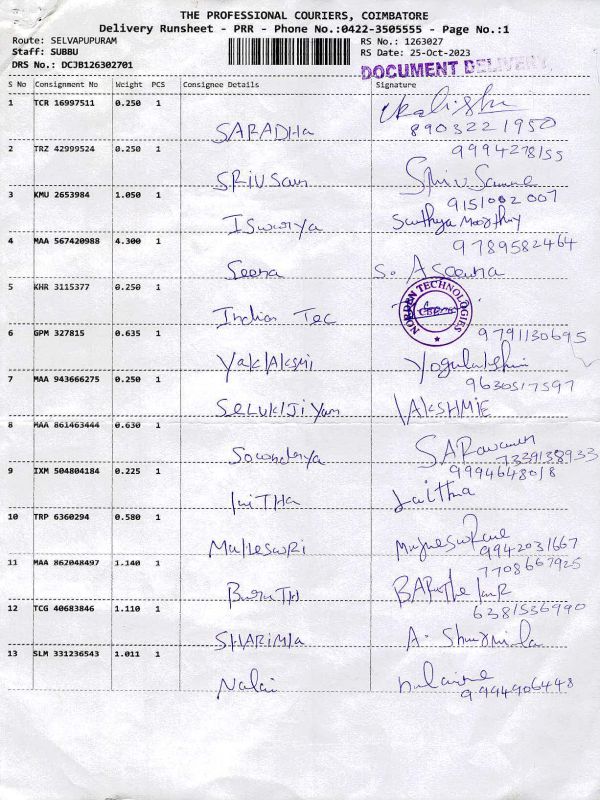 THE PROFESSIONAL COURIERS, COIMBATORE
Delivery Runsheet - PRR - Phone No.:0422-3505555 - Page No.:1
Route: SELVAPUPURAM
RS No.: 1263027
Staff: SUBBU
RS Date: 25-Oct-2023
DRS No.: DCJB126302701
DOCUMENT DELIVERY
S No Consignment No Weight PCS Consignee Details Signature
1 TCR 16997511 0.250 1
SARADHA 8903221950
2 TRZ 42999524 0.250 1 9994278155
SRIVSan
3 KMU 2653984 1.050 1 9151002007
Iswarya Santhya Moorthy
4 MAA 567420988 4.300 1 9789582464
Seena S. Aseena
5 KHR 3115377 0.250 1
Indian Tec NORDEN TECHNOLOGIES CBE
6 GPM 327815 0.635 1 9791130695
YaklAksmi Yogulakshmi
7 MAA 943666275 0.250 1 9630517597
SELUKIJiYan LAKSHMIE
8 MAA 861463444 0.630 1
Sowndarya SARavanan 7339138933
9 IXM 504804184 0.225 1 9994648018
LaiTHA Lalitha
10 TRP 6360294 0.580 1
MulleswRi 9942031667
11 MAA 862048497 1.140 1 7708667925
12 TCG 40683846 1.110 1 6381536990
SHARIMLa A. Sharmila
13 SLM 331236543 1.011 1
Nalai 9994906448